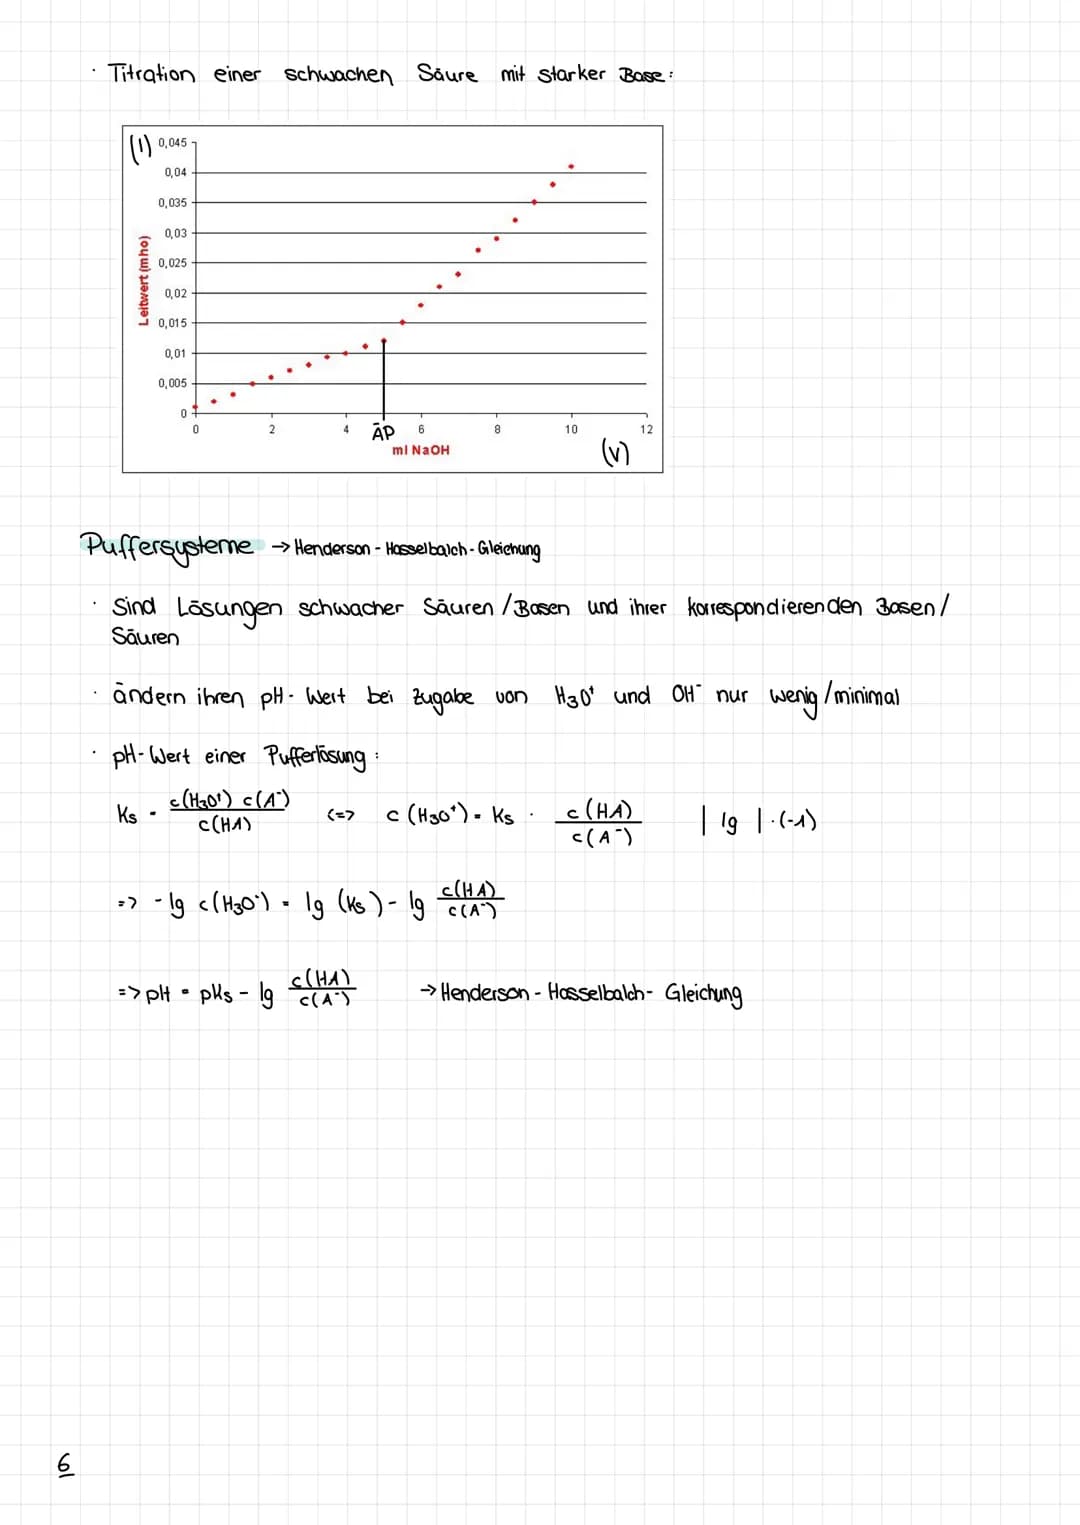 · Titration einer schwachen Säure mit starker Base:
(I) 0,045
0,04
0,035
0,03
0,025
0,02
0,015
0,01
0,005
0
Leitwert (mho)
0 2 4 ÄP 6 8 10 12
ml NaOH (V)
Puffersysteme → Henderson - Hasselbalch - Gleichung
· Sind Lösungen schwacher Säuren / Basen und ihrer korrespondierenden Basen /
Säuren
· ändern ihren pH - Wert bei Zugabe von H₃O⁺ und OH⁻ nur wenig / minimal
· pH - Wert einer Pufferlösung :
Ks = c(H₃O⁺) c(A⁻) / c(HA) <=> c (H₃O⁺) = Ks · c (HA) / c (A⁻) | lg | ·(-1)
=> - lg c(H₃O⁺) = lg (Ks) - lg c(HA) / c(A⁻)
=> pH = pKs - lg c(HA) / c(A⁻) → Henderson - Hasselbalch - Gleichung
6